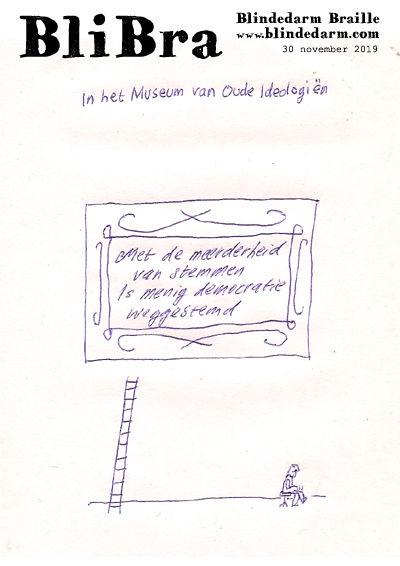 BliBra
Blindedarm Braille
www.blindedarm.com
30 november 2019
In het Museum van Oude Ideologiën
Met de meerderheid
van stemmen
Is menig democratie
weggestemd